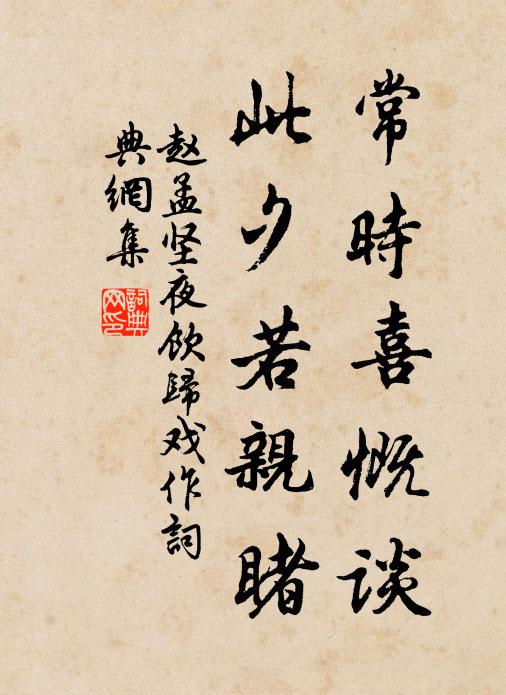 常時喜慨谈
此夕若親睹
赵孟坚夜飲歸戏作詞
典網集
詞典
网印